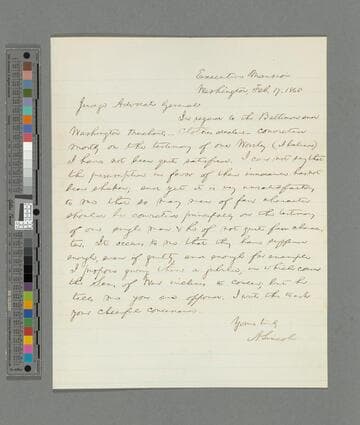 Executive Mansion
Washington, Feb. 17. 1865
Judge Advocate General
In regard to the Baltimore and
Washington Merchants, - clothes dealers - convicted
mostly on the testimony of one Worsley (I believe)
I have not been quite satisfied. I can not say that
the presumption in favor of their innocence has not
been shaken; and yet it is very unsatisfactory
to me that so many men of fair character
should be convicted principally on the testimony
of one single man & he of not quite fair charac-
ter. It occurs to me that they have suffered
enough, even if guilty, and enough for example.
I propose giving them a jubilee, in which course
the Sec. of War inclines to concur; but he
tells me you are opposed. I write this to ask
your cheerful concurrence.
Yours truly
A. Lincoln